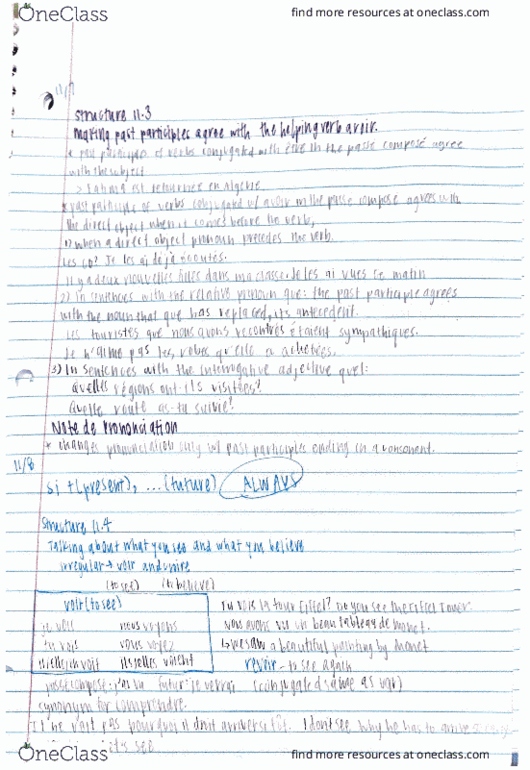 OneClass
find more resources at oneclass.com
11/7
Structure 11.3
making past participles agree with the helping verb avoir.
* past participle of verbs conjugated with être in the passé composé agree
with the subject
> Fatima est retournée en Algérie
* past participle of verbs conjugated w/ avoir in the passé composé agrees with
the direct object when it comes before the verb,
1) when a direct object pronoun precedes the verb.
Les CD? Je les ai déjà écoutés.
Il y a deux nouvelles filles dans ma classe. Je les ai vues ce matin
2) In sentences with the relative pronoun que: the past participle agrees
with the noun that que has replaced, its antecedent.
Les touristes que nous avons rencontrés étaient sympathiques.
Je n'aime pas les robes qu'elle a achetées.
3) In sentences with the interrogative adjective quel:
Quelles régions ont-ils visitées?
Quelle route as-tu suivie?
Note de Prononciation
* changes pronunciation only w/ past participles ending in a consonant.
11/8
Si + (present), ... (future) ALWAYS
Structure 11.4
Talking about what you see and what you believe
irregular → voir and croire
(to see) (to believe)
voir (to see)
je vois nous voyons
tu vois vous voyez
il/elle/on voit ils/elles voient
Tu vois la tour Eiffel? Do you see the Eiffel Tower
Nous avons vu un beau tableau de monet.
↳ we saw a beautiful painting by monet
revoir - to see again
passé composé: j'ai vu futur: je verrai (conjugated same as voir)
synonym for comprendre.
Il ne voit pas pourquoi il doit arriver si tôt. I don't see why he has to arrive so early
let's see
OneClass
find more resources at oneclass.com